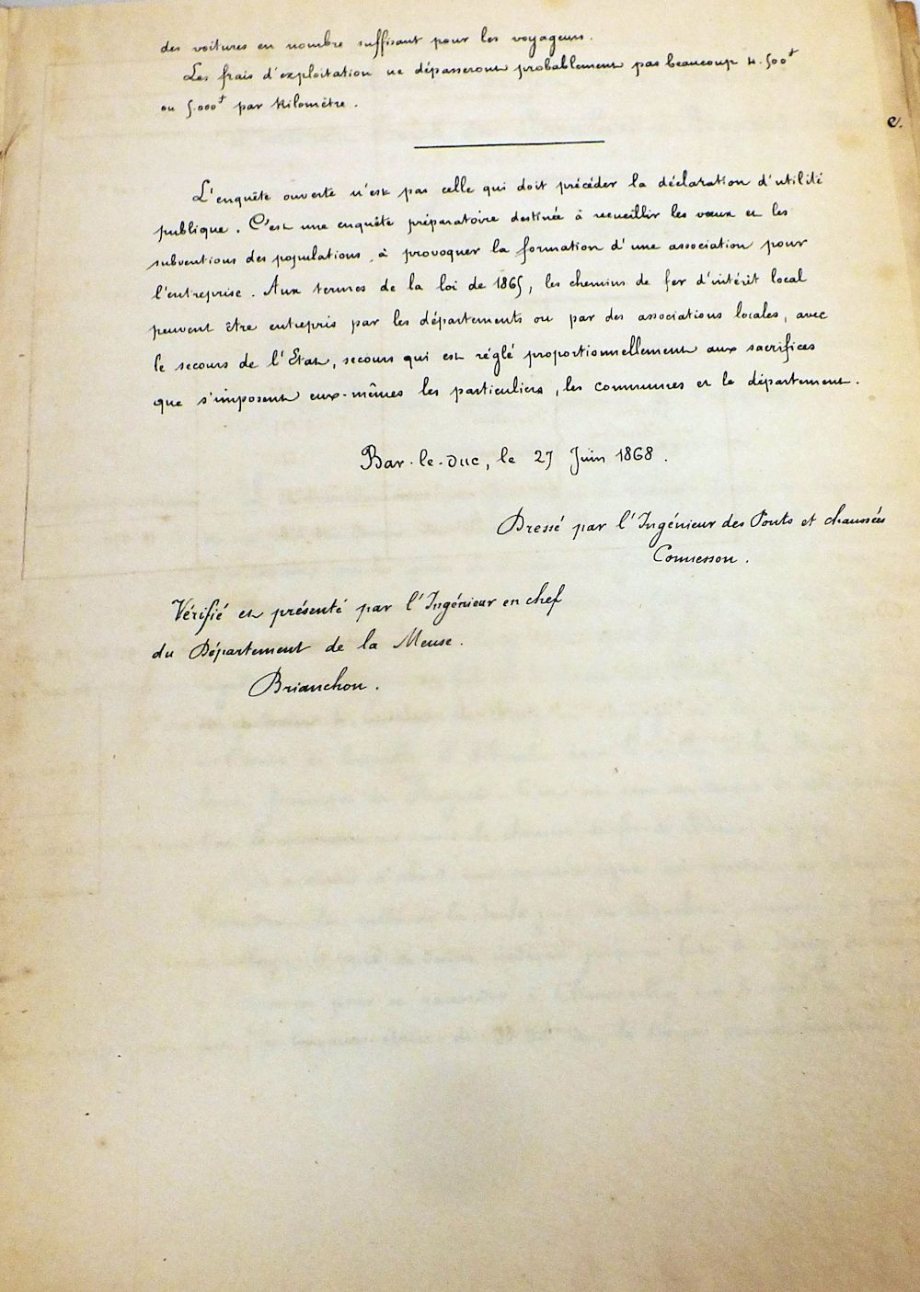 des voitures en nombre suffisant pour les voyageurs.
Les frais d'exploitation ne dépasseront probablement pas beaucoup 4.500f
e.
ou 5.000f par Kilomètre.
L'enquête ouverte n'est pas celle qui doit précéder la déclaration d'utilité
publique. C'est une enquête préparatoire destinée à recueillir les vœux et les
subventions des populations, à provoquer la formation d'une association pour
l'entreprise. Aux termes de la loi de 1865, les chemins de fer d'intérêt local
peuvent être entrepris par les départements ou par des associations locales, avec
le secours de l'Etat, secours qui est réglé proportionnellement aux sacrifices
que s'imposent eux-mêmes les particuliers, les communes et le département.
Bar-le-Duc, le 27 Juin 1868.
Dressé par l'Ingénieur des Ponts et chaussées
Comesson.
Vérifié et présenté par l'Ingénieur en chef
du Département de la Meuse.
Brianchon.